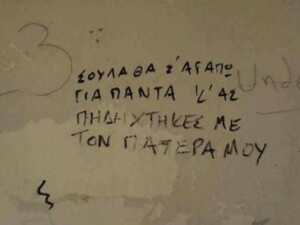 ΣΟΥΛΑ ΘΑ Σ'ΑΓΑΠΩ
ΓΙΑ ΠΑΝΤΑ 'Σ' ΑΣ
ΠΗΔΗΧΤΗΚΕΣ ΜΕ
ΤΟΝ ΠΑΤΕΡΑ ΜΟΥ